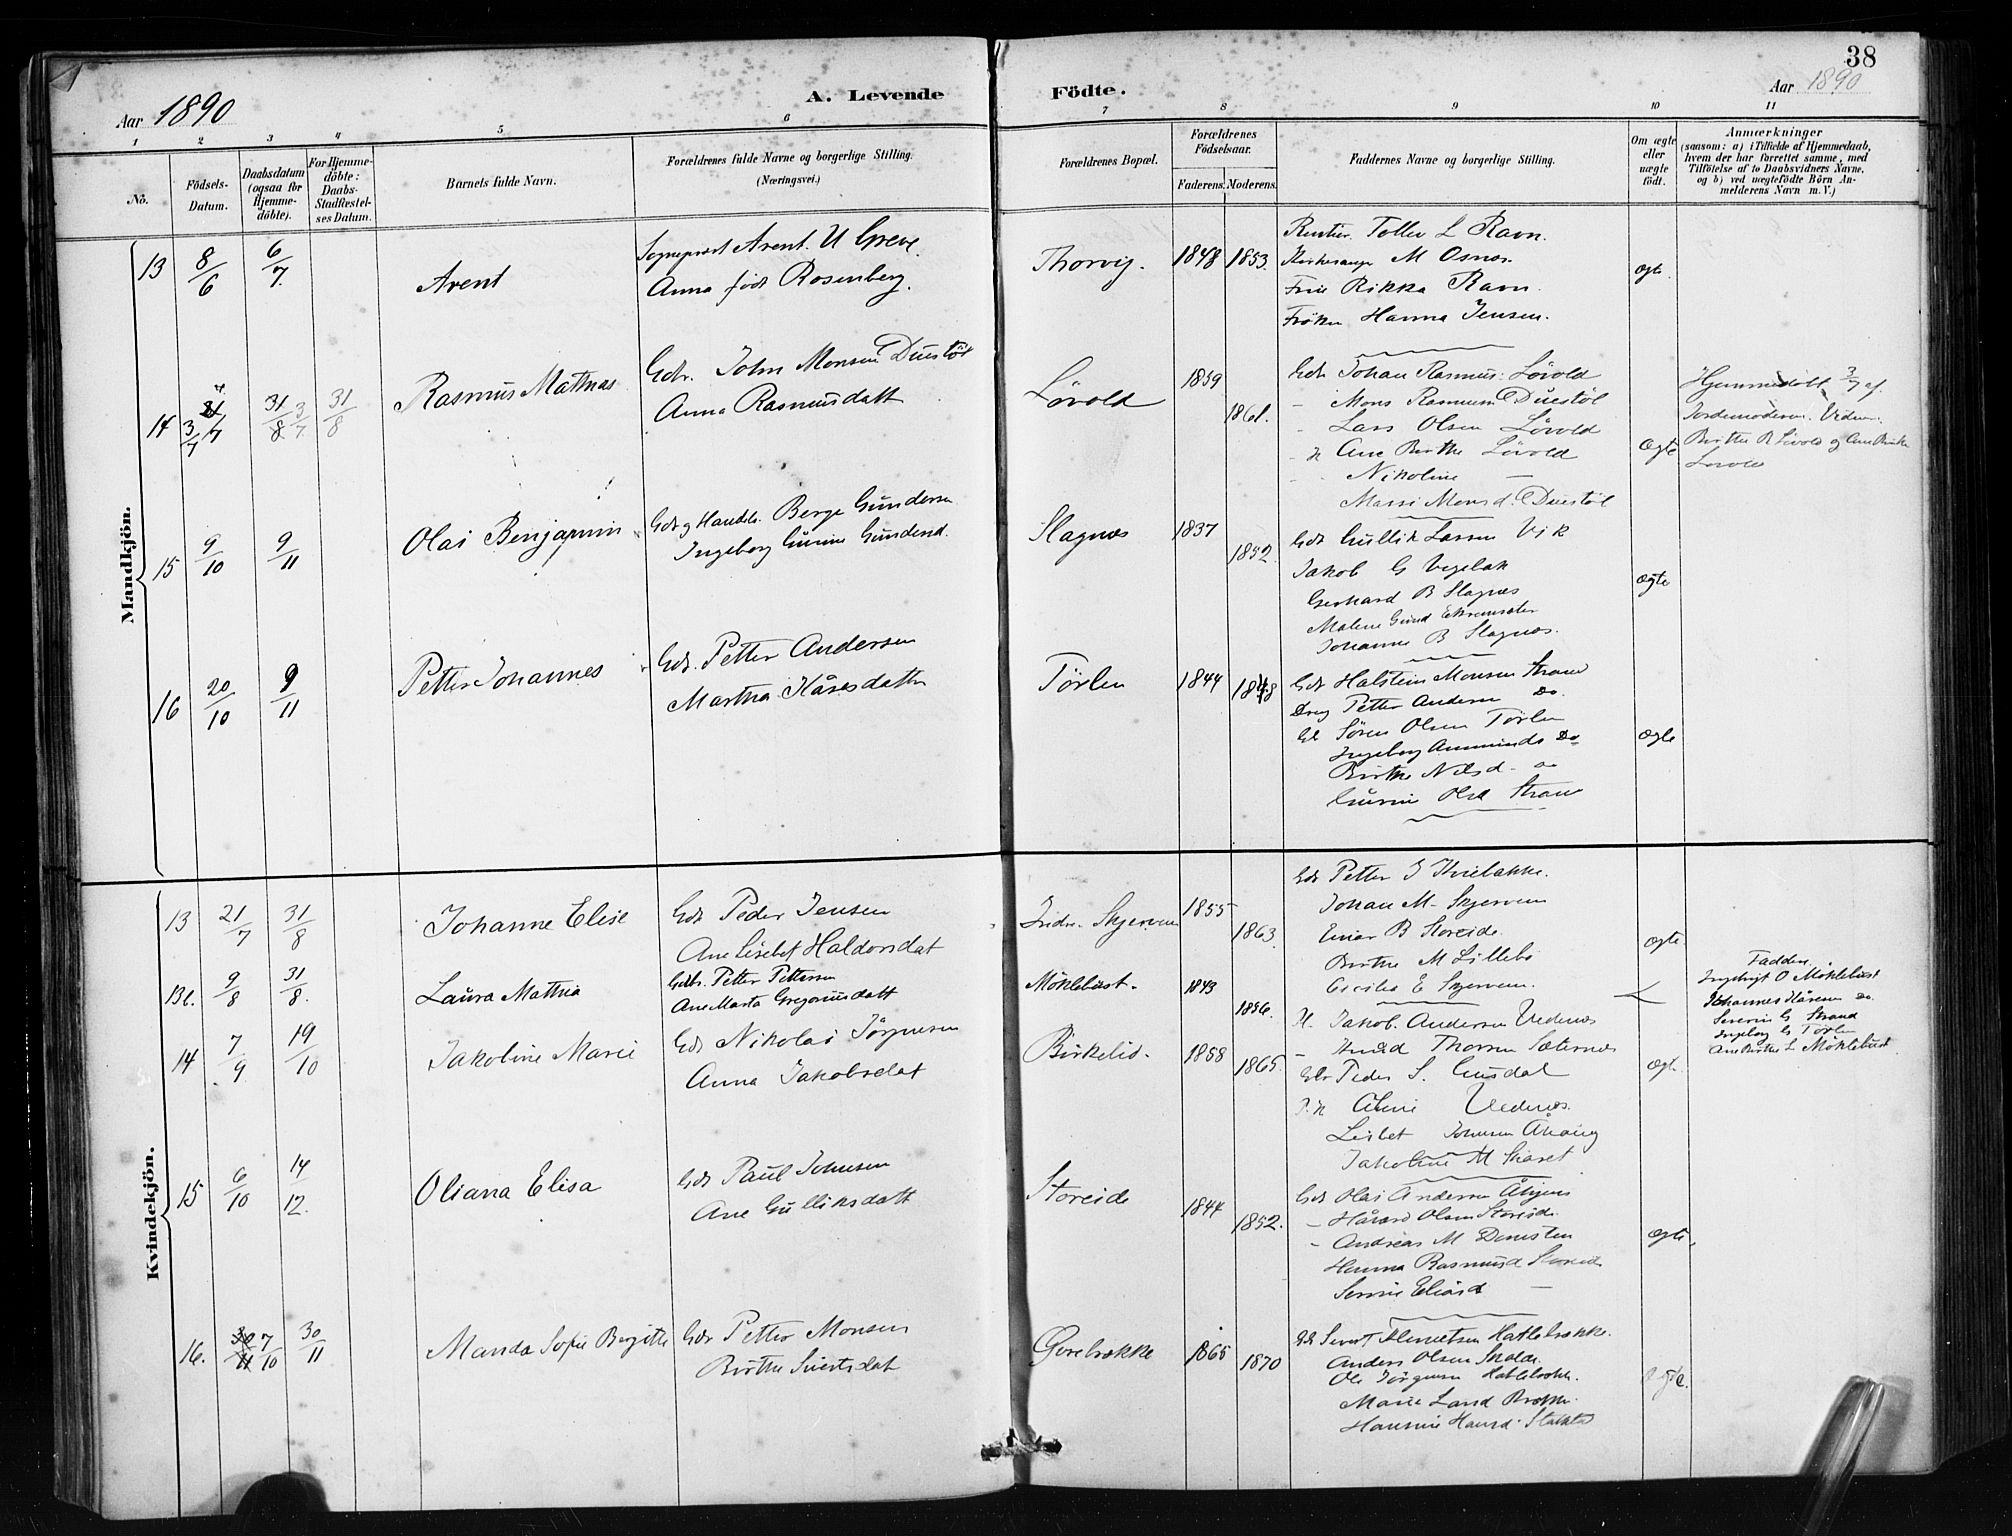 38
Aar 1890
A. Levende
Födte.
Aar 1890
1 2 3 4 5 6 7 8 9 10 11
No.
Födsels-Datum.
Daabsdatum (ogsaa for Hjemme-döbte).
For Hjemme-döbte: Daabs-Stadfæstel-ses Datum.
Barnets fulde Navn.
Forældrenes fulde Navne og borgerlige Stilling.
(Næringsvei.)
Forældrenes Bopæl.
Forældrenes Födselsaar.
Faderens. Moderens.
Faddernes Navne og borgerlige Stilling.
Om ægte eller uægte födt.
Anmærkninger
(saasom: a) i Tilfælde af Hjemmedaab, hvem der har forrettet samme, med Tilföielse af to Daabsvidners Navne, og b) ved uægtefödte Börn An-melderens Navn m. V.)
Mandkjön.
13 8/6 6/7 Arent
Sogneprest Arent U Greve.
Anna født Rosenberg.
Thorvig. 1848 1853.
Toller L Ravn.
M Osnes
Frue Rikka Ravn.
Frøken Hanna Jensen.
ægte.
14 3/7 31/8 3/7 31/8 Rasmus Mathias
Gdr. John Monsen Duestøl
Anna Rasmusdatt
Løvold 1859 1861.
Gdr Johan Rasmus: Løvold
- Mons Rasmusen Duestøl
- Lars Olsen Løvold
- K Ane Birthe Løvold
- Nikoline —
Massi Monsd. Duestøl
Ægte
Hjemmedøbt 3/7 af
Jordemoderen. Vidner
Birthe R Løvold og Ane Birthe
Løvold
15 9/10 9/11 Olai Benjamin
Gdr og Handels. Berge Gundersen
Ingeborg Gurine Gundersd.
Slagnæs 1837 1852.
Gdr Gullik Larsen Vik
Jakob G Vegelak
Gerhard B Slagnæs
Malene Gund
Johanne B Slagnæs.
Ægte
16 20/10 9/11 Petter Johannes
Gdr. Petter Andersen
Martha Kåresdatter
Tørlen 1844 1848
Gdr Halstein Monsen Strand
Dreng Petter Andersen Do.
Gdr Søren Olsen Tørlen
Ingeborg Ammunds Do
Birthe Nilsd. Do
Gurine Olsd Strand
Ægte
Kvindekjön.
13 21/7 31/8 Johanne Elise
Gdr Peder Jensen
Ane Lisebet Haldorsdat
Indre Skjerven 1855 1863.
Gdr Petter J
Johan M. Skjerven
Einar B Storeide.
Birthe M Lillebø
Cecilia E Skjerven.
ægte.
13b. 9/8 31/8. Laura Mathia
Gdr. Petter Pettersen
Ane Marta Gregoriusdatt
Møklebust. 1843 1856.
Faddere
Ingebrigt O Møklebust
Johannes Kåresen Do.
Severin G Strand
Ingeborg G Tørlen
Ane Birthe L Møklebust
14 7/9 19/10 Jakoline Marie
Gdr Nikolai Jørgensen
Anna Jakobsdat
Birkelid. 1858 1865.
K. Jakob Andersen Vedenæs
- Knud Thorsen Sæternæs
Gdr Peder S. Gusdal
P.K Oline Vedenæs.
Lisbet Johnsen
Jakoline M Skaret
Ægte
15 6/10 14/12. Oliana Elisa
Gdr Paul Johnsen
Ane Gulliksdatt
Storeide 1844 1852.
Gdr Olai Andersen
- Håvard Olsen Storeide
- Andreas M
Hanna Rasmusd Storeide
Serine Eliasd —
Ægte.
16. 30/11 7/10 30/11 Manda Sofie Bergitte
Gdr Petter Monsen
Birthe Sivertsdat
Gerebrække 1865 1870
Gdr Sivert Hatlebrække.
Anders Olsen
Ole Jørgensen Hatlebrække.
Marie Larsd Brække.
Hansine Hansd.
Ægte.